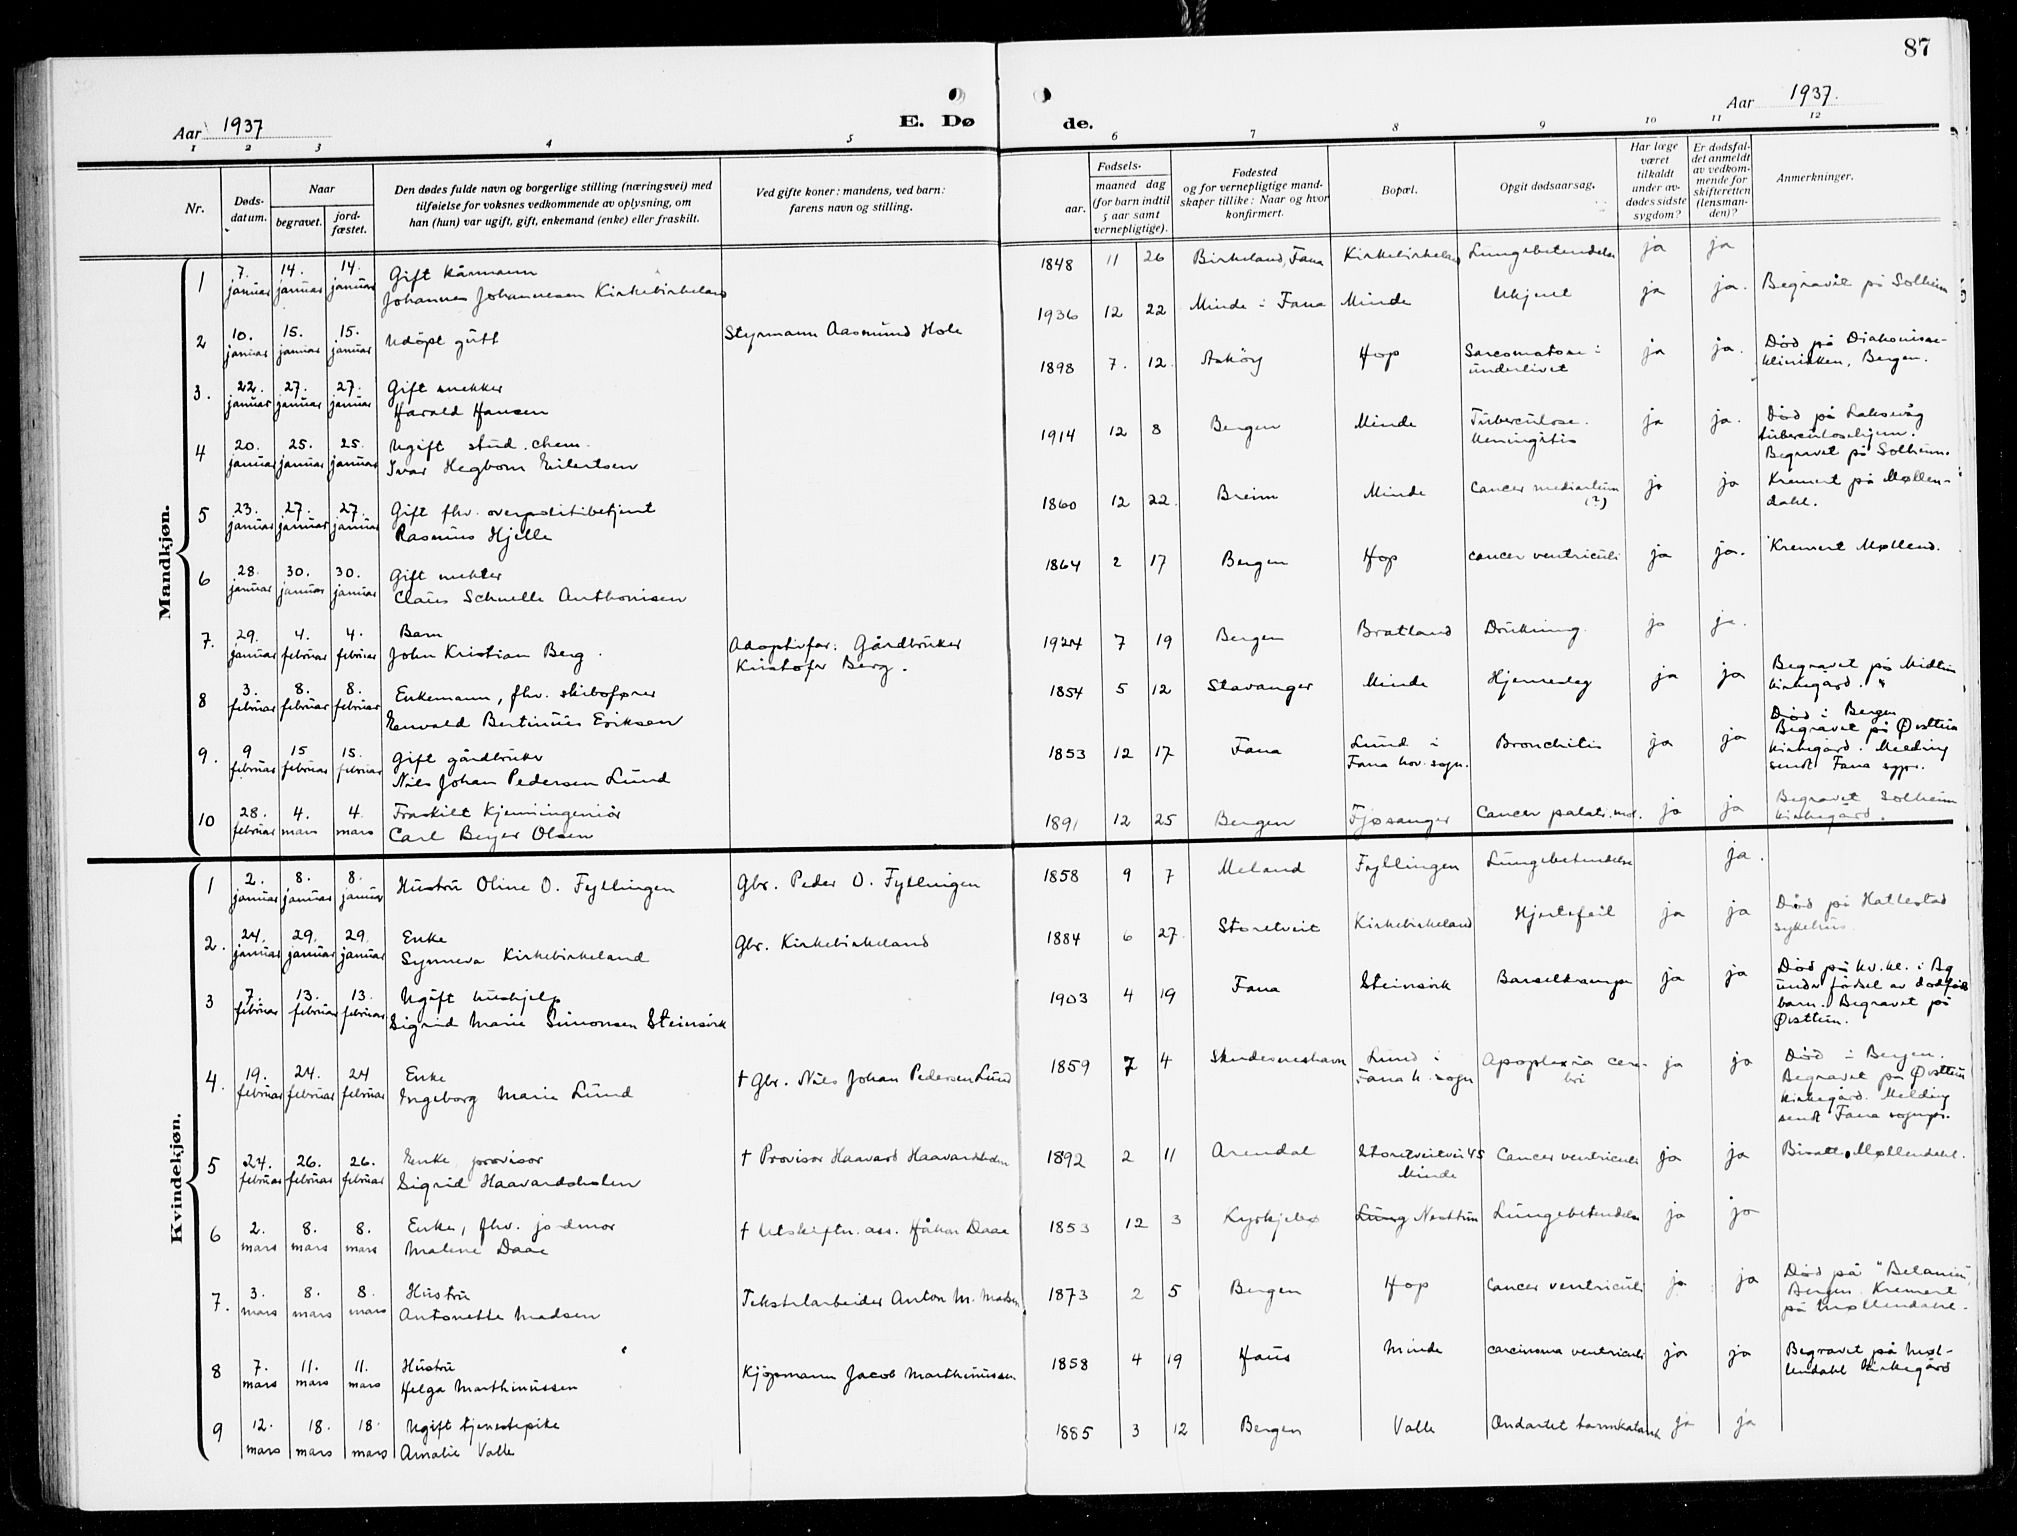 87
Aar 1937
E. Dø
de.
Aar 1937.
1 2 3 4 5 6 7 8 9 10 11 12
Nr.
Døds-
datum.
Naar
begravet.
jord-
fæstet.
Den dødes fulde navn og borgerlige stilling (næringsvei) med
tilføielse for voksnes vedkommende av oplysning, om
han (hun) var ugift, gift, enkemand (enke) eller fraskilt.
Ved gifte koner: mandens, ved barn:
farens navn og stilling.
Fødsels-
aar.
maaned dag
(for barn indtil
5 aar samt
vernepligtige).
Fødested
og for vernepligtige mand-
skaper tillike: Naar og hvor
konfirmert.
Bopæl.
Opgit dødsaarsag.
Har læge
været
tilkaldt
under av-
dødes sidste
sygdom?
Er dødsfal-
det anmeldt
av vedkom-
mende for
skifteretten
(lensman-
den)?
Anmerkninger.
Mandkjøn.
1 7. januar 14. januar 14. januar Gift kårmann
Johannes Johannesen Kirkebirkeland
1848 11 26 Birkeland, Fana Kirkebirkeland Lungebetendelse ja ja
2 10. januar 15. januar 15. januar Udöpt gutt Styrmann Aasmund Hole
1936 12 22 Minde i Fana Minde Ukjent ja ja. Begravet på Solheim
3. 22. januar 27. januar 27. januar Gift snekker
Harald Hansen
1898 7. 12. Askøy Hop Sarcomatose i
underlivet ja ja. Død på Diakonisse-
klinikken, Bergen.
4 20. januar 25. januar 25. januar Ugift stud. chem.
Ivar Hegbom Eilertsen
1914 12 8 Bergen Minde Tuberculose.
Meningitis ja ja. Død på Laksevåg
tuberculosehjem.
Begravet på Solheim.
5 23. januar 27. januar 27. januar Gift fhv. overpolitibetjent
Rasmus Hjelle
1860 12 22. Breim Minde Cancer mediastium
(?) ja ja Kremert på Møllen-
dahl.
6 28. januar 30. januar 30. januar Gift
Claus Schnelle Anthonisen
1864 2 17 Bergen Hop cancer ventriculi ja ja. Kremert Møllend.
7. 29. januar 4. februar 4. februar Barn
John Kristian Berg. Adoptivfar: Gårdbruker
Kristofer Berg.
1924 7 19 Bergen Bratland Drukning. ja ja.
8 3. februar 8. februar 8. februar Enkemann, fhv. skibsfører
Enevald Bertinius Eriksen
1854 5 12 Stavanger Minde Hjerneslag ja ja Begravet på Midtun
kirkegård.
9. 9 februar 15 februar 15. februar Gift gårdbruker
Nils Johan Pedersen Lund
1853 12 17 Fana Lund i
Fana hov. sogn. Bronchitis ja ja Død i Bergen
Begravet på Øvsttun
kirkegård. Melding
sendt Fana sgpr.
10 28. februar 4. mars 4. mars Fraskilt Kjemiingeniør
Carl Beyer Olsen
1891 12 25 Bergen Fjøsanger Cancer palati. mol. ja ja Begravet Solheim
kirkegård.
Kvindekjøn.
1 2. januar 8. januar 8. januar Hustru Oline O. Fyllingen Gbr. Peder O. Fyllingen
1858 9 7 Meland Fyllingen Lungebetendelse ja.
2. 24. januar 29. januar 29. januar Enke
Synneva Kirkebirkeland Gbr. Kirkebirkeland
1884 6 27. Storetveit Kirkebirkeland Hjertefeil ja ja Død på Hattestad
sykehus.
3 7. februar 13. februar 13. februar Ugift hushjelp
Sigrid Marie Simonsen Steinsvik
1903 4 19 Fana Steinsvik Barselkrampe ja ja Død på kv.kl. i Bg
under fødsel av dødfødt
barn. Begravet på
Øvsttun.
4. 19. februar 24. februar 24 februar Enke
Ingeborg Marie Lund † Gbr. Nils Johan Pedersen Lund
1859 7 4 Skudesneshavn Lund i
Fana h. sogn Apoplexia cere-
bri ja ja Død i Bergen.
Begravet på Øvsttun
kirkegård. Melding
sendt Fana sognepr.
5 24. februar 26. februar 26. februar Enke, provisor
Sigrid Haavardsholm † Provisor Haavard Haavardsholm
1892 2 11 Arendal Storetveitvei 45
Minde Cancer ventriculi ja ja Bisatt Møllendahl.
6 2. mars 8. mars 8. mars Enke, fhv. jordmor
Malene Daae † Utskiftn. ass. Håkon Daae
1853 12 3 Kyrkjebø Lung Nesttun Lungebetendelse ja ja
7. 3. mars 8. mars 8. mars Hustru
Antonette Madsen Tekstilarbeider Anton M. Madsen
1873 2 5 Bergen Hop Cancer ventriculi ja ja Død på "Betanien",
Bergen. Kremert
på Møllendahl.
8 7. mars 11. mars 11. mars Hustru
Helga Marthinussen Kjøpmann Jacob Marthinussen
1858 4 19 Haus Minde carcinoma ventriculi ja ja Begravet på Møl-
lendahl kirkegård
9 12. mars 18. mars 18. mars Ugift tjenestepike
Amalie Valle
1885 3 12 Bergen Valle Ondartet tarmkatarrh ja ja